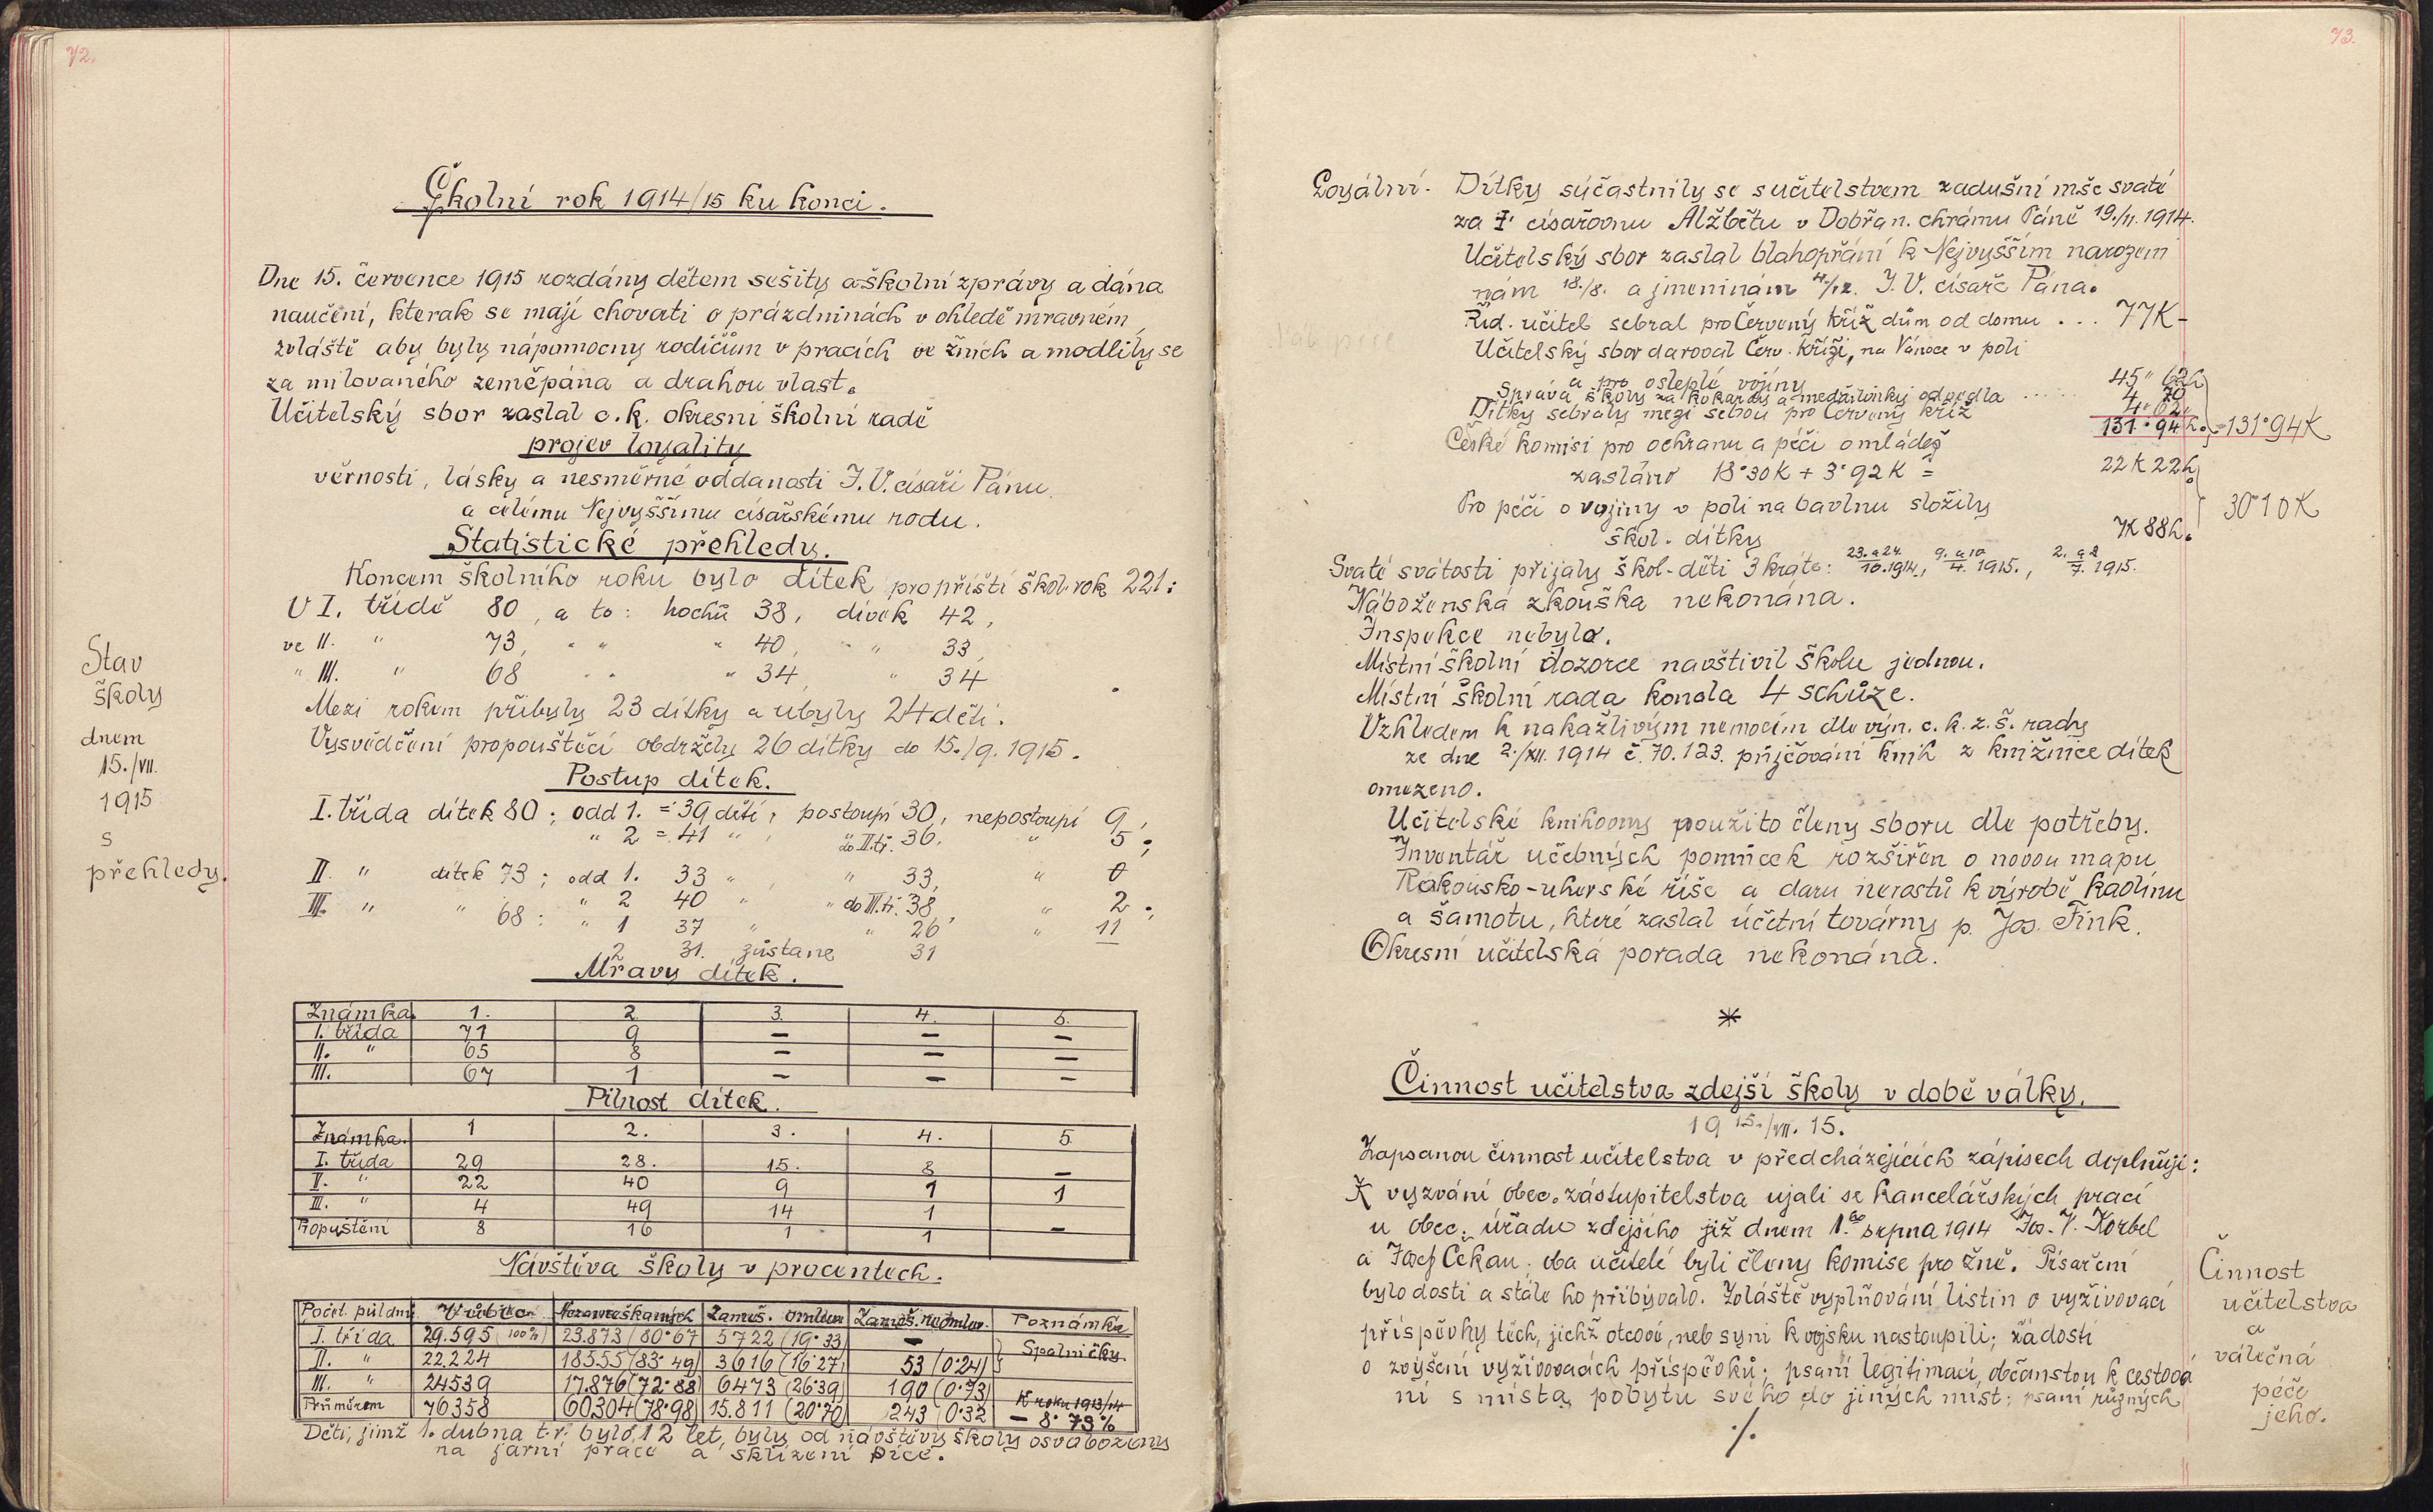 72.
Školní rok 1914/15 ku konci.
Dne 15. července 1915 rozdány dětem sešity a školní zprávy a dána
naučení, kterak se mají chovati o prázdninách v ohledě mravném,
zvláště aby byly nápomocny rodičům v pracích ve žních a modlily se
za milovaného zeměpána a drahou vlast.
Učitelský sbor zaslal c. k. okresní školní radě
projev loyality
věrnosti, lásky a nesměrné oddanosti J. V. císaři Pánu
a celému Nejvyššímu císařskému rodu.
Statistické přehledy.
Koncem školního roku bylo dítek pro příští škol. rok 221:
V I. třídě 80, a to: hochů 38, dívek 42,
ve II. " 73, " " " 40, " 33,
" III. " 68 " " " 34, " 34
Mezi rokem přibyly 23 dítky a ubyly 24 děti.
Vysvědčení propouštěcí obdržely 26 dítky do 15./9. 1915.
Stav
školy
dnem
15./VII.
1915
s
přehledy.
Postup dítek.
I. třída dítek 80; odd 1. = 39 dětí, postoupí 30, nepostoupí 9,
" 2 = 41 " , do II. tř. 36, " 5;
II. " dítek 73; odd 1. 33 " , " 33, " 0
" 2 40 " " do III. tř. 38, " 2;
III. " " 68: " 1 37 " " 26 " 11
2 31. zůstane 31
Mravy dítek.
Známka 1. 2. 3. 4. 5.
I. třída 71 9 — — —
II. " 65 8 — — —
III. 67 1 — — —
Pilnost dítek.
Známka. 1 2. 3. 4. 5.
I. třída 29 28. 15. 8 —
II. " 22 40 9 1 1
III. " 4 49 14 1
Propuštění 8 16 1 1 —
Návštěva školy v procentech.
Počet půldnů Nezameškaných Zameš. omluv. Zameš. neomluv. Poznámka
I. třída 29.595 (100%) 23.873 (80·67 5722 (19·33) — Spalničky
II. " 22.224 18555 (83·49) 3616 (16·27) 53 (0·24)
III. " 24539 17.876 (72·88) 6473 (26·39) 190 (0·73)
Průměrem 76358 60.304 (78·98) 15.811 (20·70) 243 (0·32 K roku 1913/14
— 8·73%
Děti, jimž 1. dubna t. r. bylo 12 let, byly od návštěvy školy osvobozeny
na jarní práce a sklizení píce.
73.
Loyální. Dítky súčastnily se s učitelstvem zadušní mše svaté
za † císařovnu Alžbětu v Dobřan. chrámu Páně 19./11. 1914.
Učitelský sbor zaslal blahopřání k Nejvyšším narozeni
nám 18./8. a jmeninám 4./12. J. V. císaře Pána.
Říd. učitel sebral pro Červený kříž dům od domu ... 77K-
Učitelský sbor daroval Červ. kříži, na Vánoce v poli
a pro osleplé vojíny 45" 62h
Správa školy za kokardy a medailonky odvedla ..... 4 70
Dítky sebraly mezi sebou pro Červený kříž 4" 62"
131·94h. = 131·94K
České komisi pro ochranu a péči o mládež
zasláno 18·30K + 3·92K = 22K 22h
Pro péči o vojíny v poli na bavlnu složily
škol. dítky 7K 88h.
30·10K
Svaté svátosti přijaly škol. děti 3 kráte: 23. a 24./10. 1914., 9. a 10/4. 1915., 2. a 2/7. 1915.
Náboženská zkouška nekonána.
Inspekce nebylo.
Místní školní dozorce navštívil školu jednou.
Místní školní rada konala 4 schůze.
Vzhledem k nakažlivým nemocím dle výn. c. k. z. š. rady
ze dne 2./XII. 1914 č. 70.123. půjčování knih z knižnice dítek
omezeno.
Učitelské knihovny použito členy sboru dle potřeby.
Inventář učebných pomůcek rozšířen o novou mapu
Rakousko-uherské říše a daru nerostů k výrobě kaolinu
a šamotu, které zaslal účetní továrny p. Jos. Fink.
Okresní učitelská porada nekonána.
*
Činnost učitelstva zdejší školy v době války.
19 15./VII. 15.
Zapsanou činnost učitelstva v předcházejících zápisech doplňuji:
K vyzvání obec. zastupitelstva ujali se kancelářských prací
u obec. úřadu zdejšího již dnem 1.ho srpna 1914 Jos. V. Korbel
a Josef Čekan; oba učitelé byli členy komise pro žně. Písaření
bylo dosti a stále ho přibývalo. Zvláště vyplňování listin o vyživovací
příspěvky těch, jichž otcové, neb syni k vojsku nastoupili; žádosti
o zvýšení vyživovacích příspěvků; psaní legitimací občanstvu k cestová
ní s místa pobytu svého do jiných míst; psaní různých
./.
Činnost
učitelstva
a
válečná
péče
jeho.